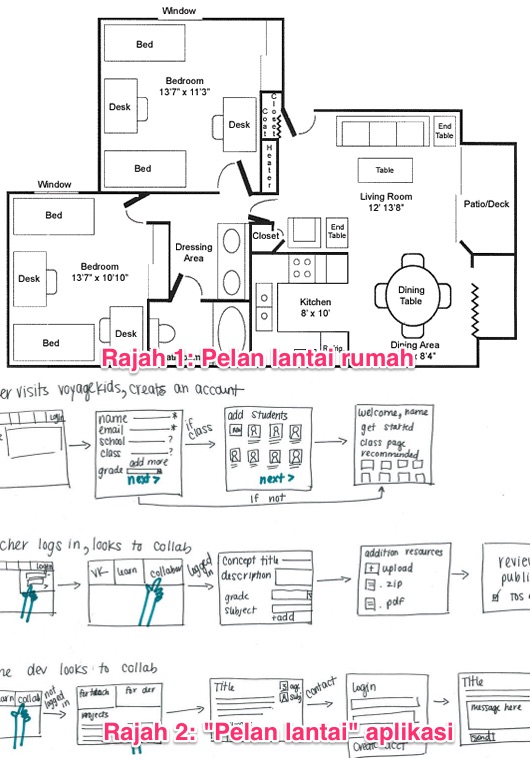 Window
Bed
Bedroom
13'7" x 11'3"
Desk
Desk
Coat
Closet
Heater
Bed
End
Table
Table
Living Room
12' 13'8"
Patio/Deck
Window
Bed
Dressing
Area
Closet
End
Table
Bedroom
13'7" x 10'10"
Desk
Kitchen
8' x 10'
Dining
Table
Desk
Bed
Dining Area
8'4"
Rajah 1: Pelan lantai rumah
visits voyagekids, creates an account
Login
name
email
school ?
class ?
add more
grade
next >
if
class
add students
next >
welcome, name
get started
class page
recommended
if not
logs in, looks to collab
Login
VK learn collabor
logged
in
concept title
description
grade
subject
+add
addition resources
+ upload
.zip
.pdf
dev looks to collab
collab
not
logged
in
for teach
for dev
projects
Title
contact
Login
Title
message here
send
Rajah 2: "Pelan lantai" aplikasi